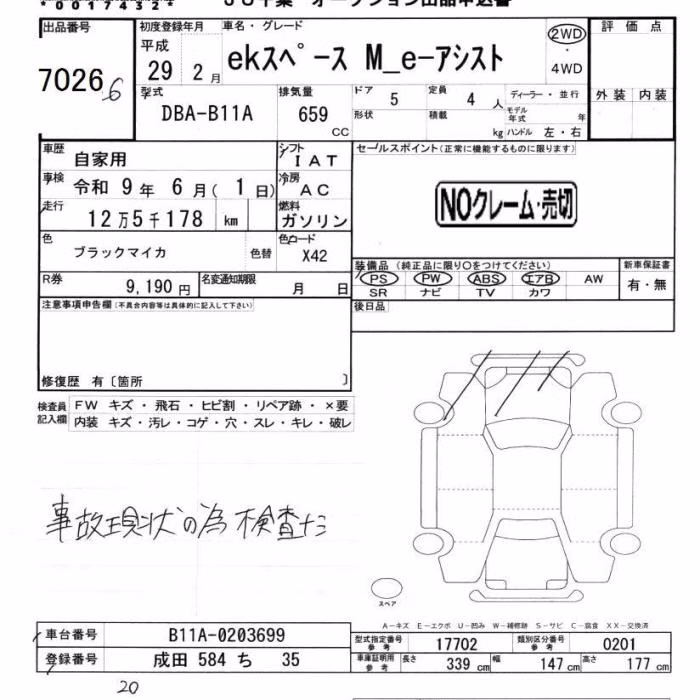 *0017432*
出品番号
70266
初度登録年月
平成
29 2月
車名・グレード
ekスペース M_e-アシスト
2WD
・
4WD
評価点
外装 内装
型式
DBA-B11A
排気量
659
CC
ドア
5
定員
4
人
ディーラー・並行
形状
積載
kg
モデル
年式
年
ハンドル 左・右
車歴
自家用
シフト
IAT
セールスポイント(正常に機能するものに限ります)
車検
令和 9年 6月( 1日)
冷房
AC
NOクレーム・売切
走行
12万5千178 km
燃料
ガソリン
色
ブラックマイカ
色替
色コード
X42
装備品 (純正品に限り○をつけてください)
PS PW ABS エアB AW
SR ナビ TV カワ
新車保証書
有・無
R券
9,190円
名変通知期限
月 日
後日品
注意事項申告欄(不具合内容等は具体的に記入して下さい)
修復歴 有〔箇所 〕
検査員
記入欄
FW キズ・飛石・ヒビ割・リペア跡・×要
内装 キズ・汚レ・コゲ・穴・スレ・キレ・破レ
事故現状の為検査なし
スペア
A-キズ E-エクボ U-凹み W-補修跡 S-サビ C-腐食 XX-交換済
車台番号
B11A-0203699
型式指定番号
参考
17702
類別区分番号
参考
0201
登録番号
成田 584 ち 35
車庫証明用
参考
長さ
339 cm
幅
147 cm
高さ
177 cm
20